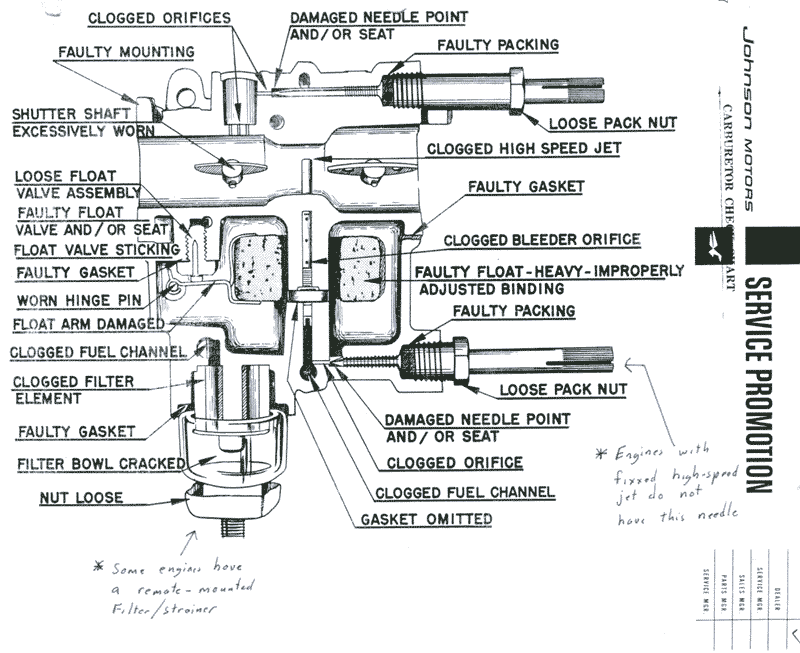 CLOGGED ORIFICES
DAMAGED NEEDLE POINT
AND/OR SEAT
FAULTY PACKING
FAULTY MOUNTING
SHUTTER SHAFT
EXCESSIVELY WORN
LOOSE PACK NUT
CLOGGED HIGH SPEED JET
LOOSE FLOAT
VALVE ASSEMBLY
FAULTY FLOAT
VALVE AND/OR SEAT
FLOAT VALVE STICKING
FAULTY GASKET
WORN HINGE PIN
FLOAT ARM DAMAGED
CLOGGED FUEL CHANNEL
CLOGGED FILTER
ELEMENT
FAULTY GASKET
FILTER BOWL CRACKED
NUT LOOSE
FAULTY GASKET
CLOGGED BLEEDER ORIFICE
FAULTY FLOAT-HEAVY-IMPROPERLY
ADJUSTED BINDING
FAULTY PACKING
LOOSE PACK NUT
DAMAGED NEEDLE POINT
AND/OR SEAT
CLOGGED ORIFICE
CLOGGED FUEL CHANNEL
GASKET OMITTED
* Some engines have
a remote-mounted
Filter/strainer
* Engines with
fixxed high-spred
jet do not
have this needle
Johnson MOTORS
CARBURETOR CHECK CHART
SERVICE PROMOTION
DEALER
SERVICE MGR
SALES MGR
PARTS MGR
SERVICE MGR